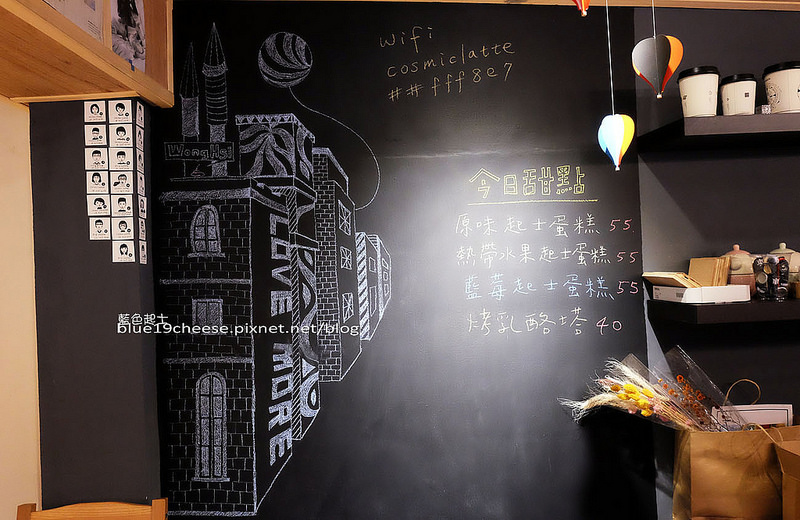 wifi
cosmiclatte
##fff8e7
今日甜點
原味起士蛋糕 55
熱帶水果起士蛋糕 55
藍莓起士蛋糕 55
烤乳酪塔 40
LOVE MORE
藍色起士
blue19cheese.pixnet.net/blog